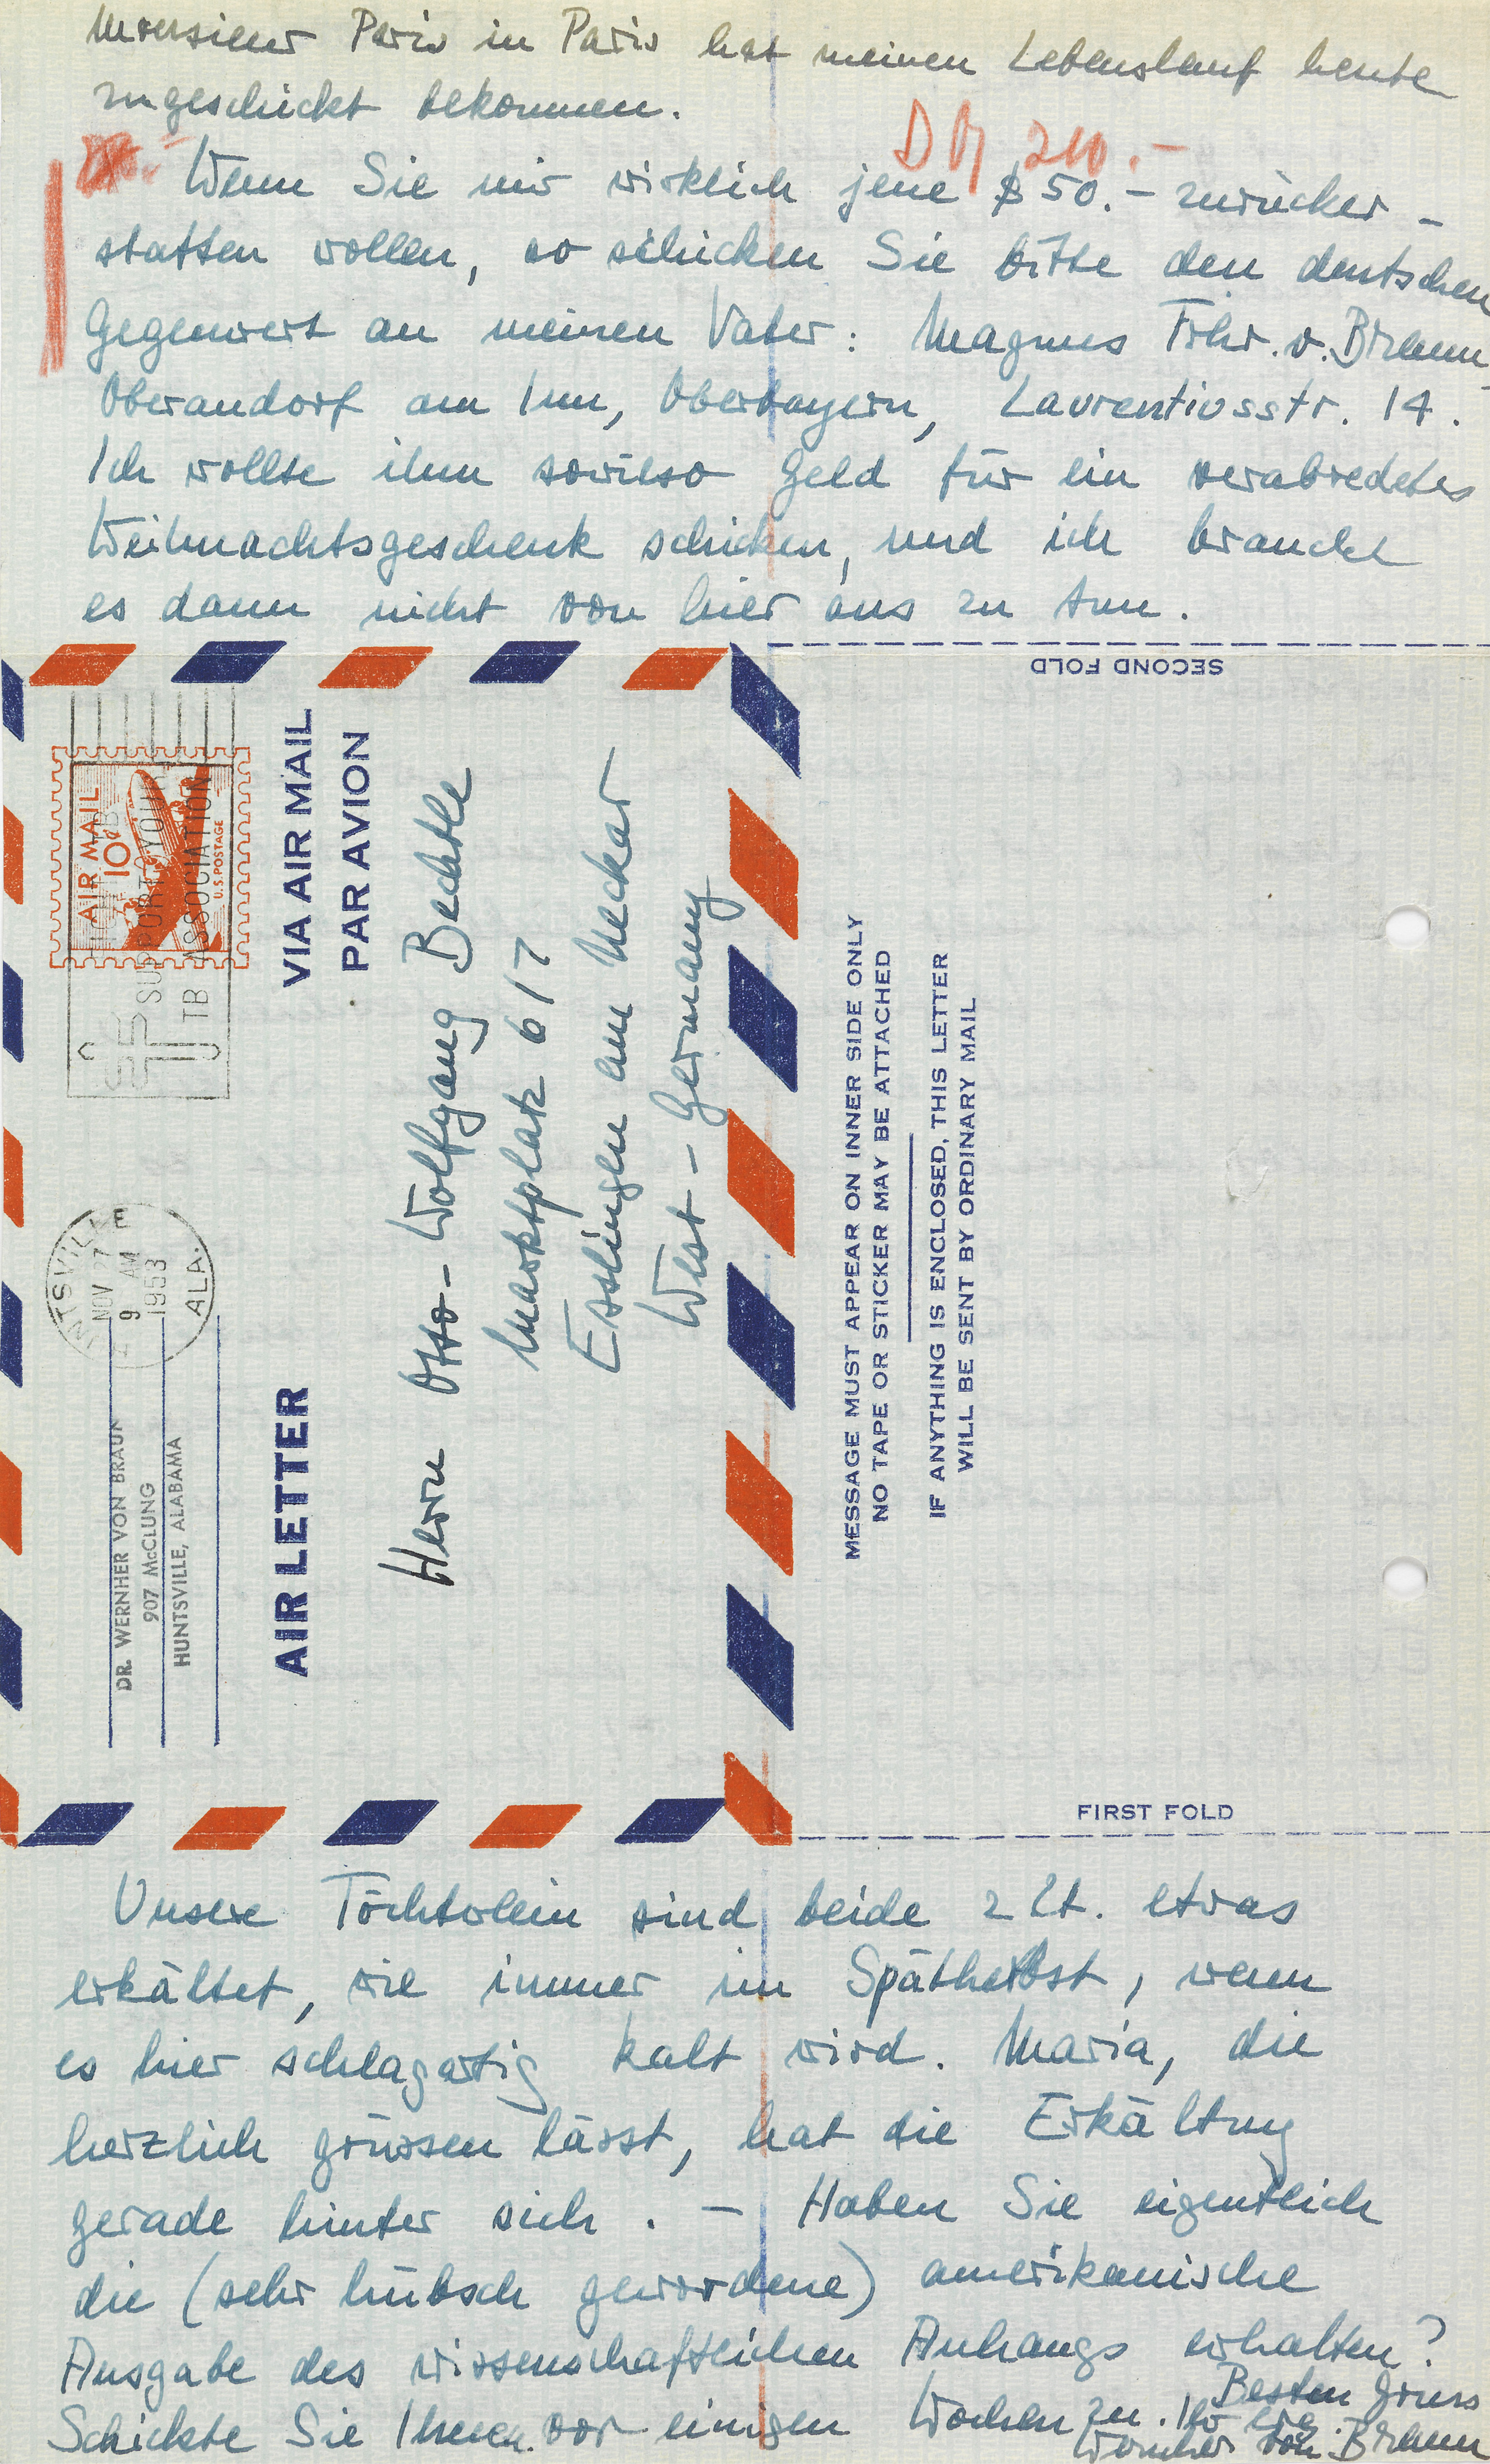 Monsieur Paris in Paris hat meinen Lebenslauf heute
zugeschickt bekommen.
DM 210.-
Wenn Sie mir wirklich jene $ 50.- zurücker-
statten wollen, so schicken Sie bitte den deutschen
Gegenwert an meinen Vater: Magnus Frhr. v. Braun,
Oberaudorf am Inn, Oberbayern, Laurentiusstr. 14.
Ich wollte ihm sowieso Geld für ein verabredetes
Weihnachtsgeschenk schicken, und ich brauche
es dann nicht von hier aus zu tun.
SECOND FOLD
AIR MAIL
10¢
U.S. POSTAGE
SUPPORT YOUR
TB ASSOCIATION
VIA AIR MAIL
PAR AVION
HUNTSVILLE
NOV 7
9 AM
1953
ALA.
DR. WERNHER VON BRAUN
907 McCLUNG
HUNTSVILLE, ALABAMA
AIR LETTER
Herrn Otto-Wolfgang Bechtle
Marktplatz 6/7
Esslingen am Neckar
West-Germany
MESSAGE MUST APPEAR ON INNER SIDE ONLY
NO TAPE OR STICKER MAY BE ATTACHED
IF ANYTHING IS ENCLOSED, THIS LETTER
WILL BE SENT BY ORDINARY MAIL
FIRST FOLD
Unsere Töchterlein sind beide z Zt. etwas
erkältet, wie immer im Spätherbst, wenn
es hier schlagartig kalt wird. Maria, die
herzlich grüssen lässt, hat die Erkältung
gerade hinter sich. - Haben Sie eigentlich
die (sehr hübsch gewordene) amerikanische
Ausgabe des wissenschaftlichen Anhangs erhalten?
Schickte Sie Ihnen vor einigen Wochen zu.
Besten Gruss
Ihr
Wernher von Braun